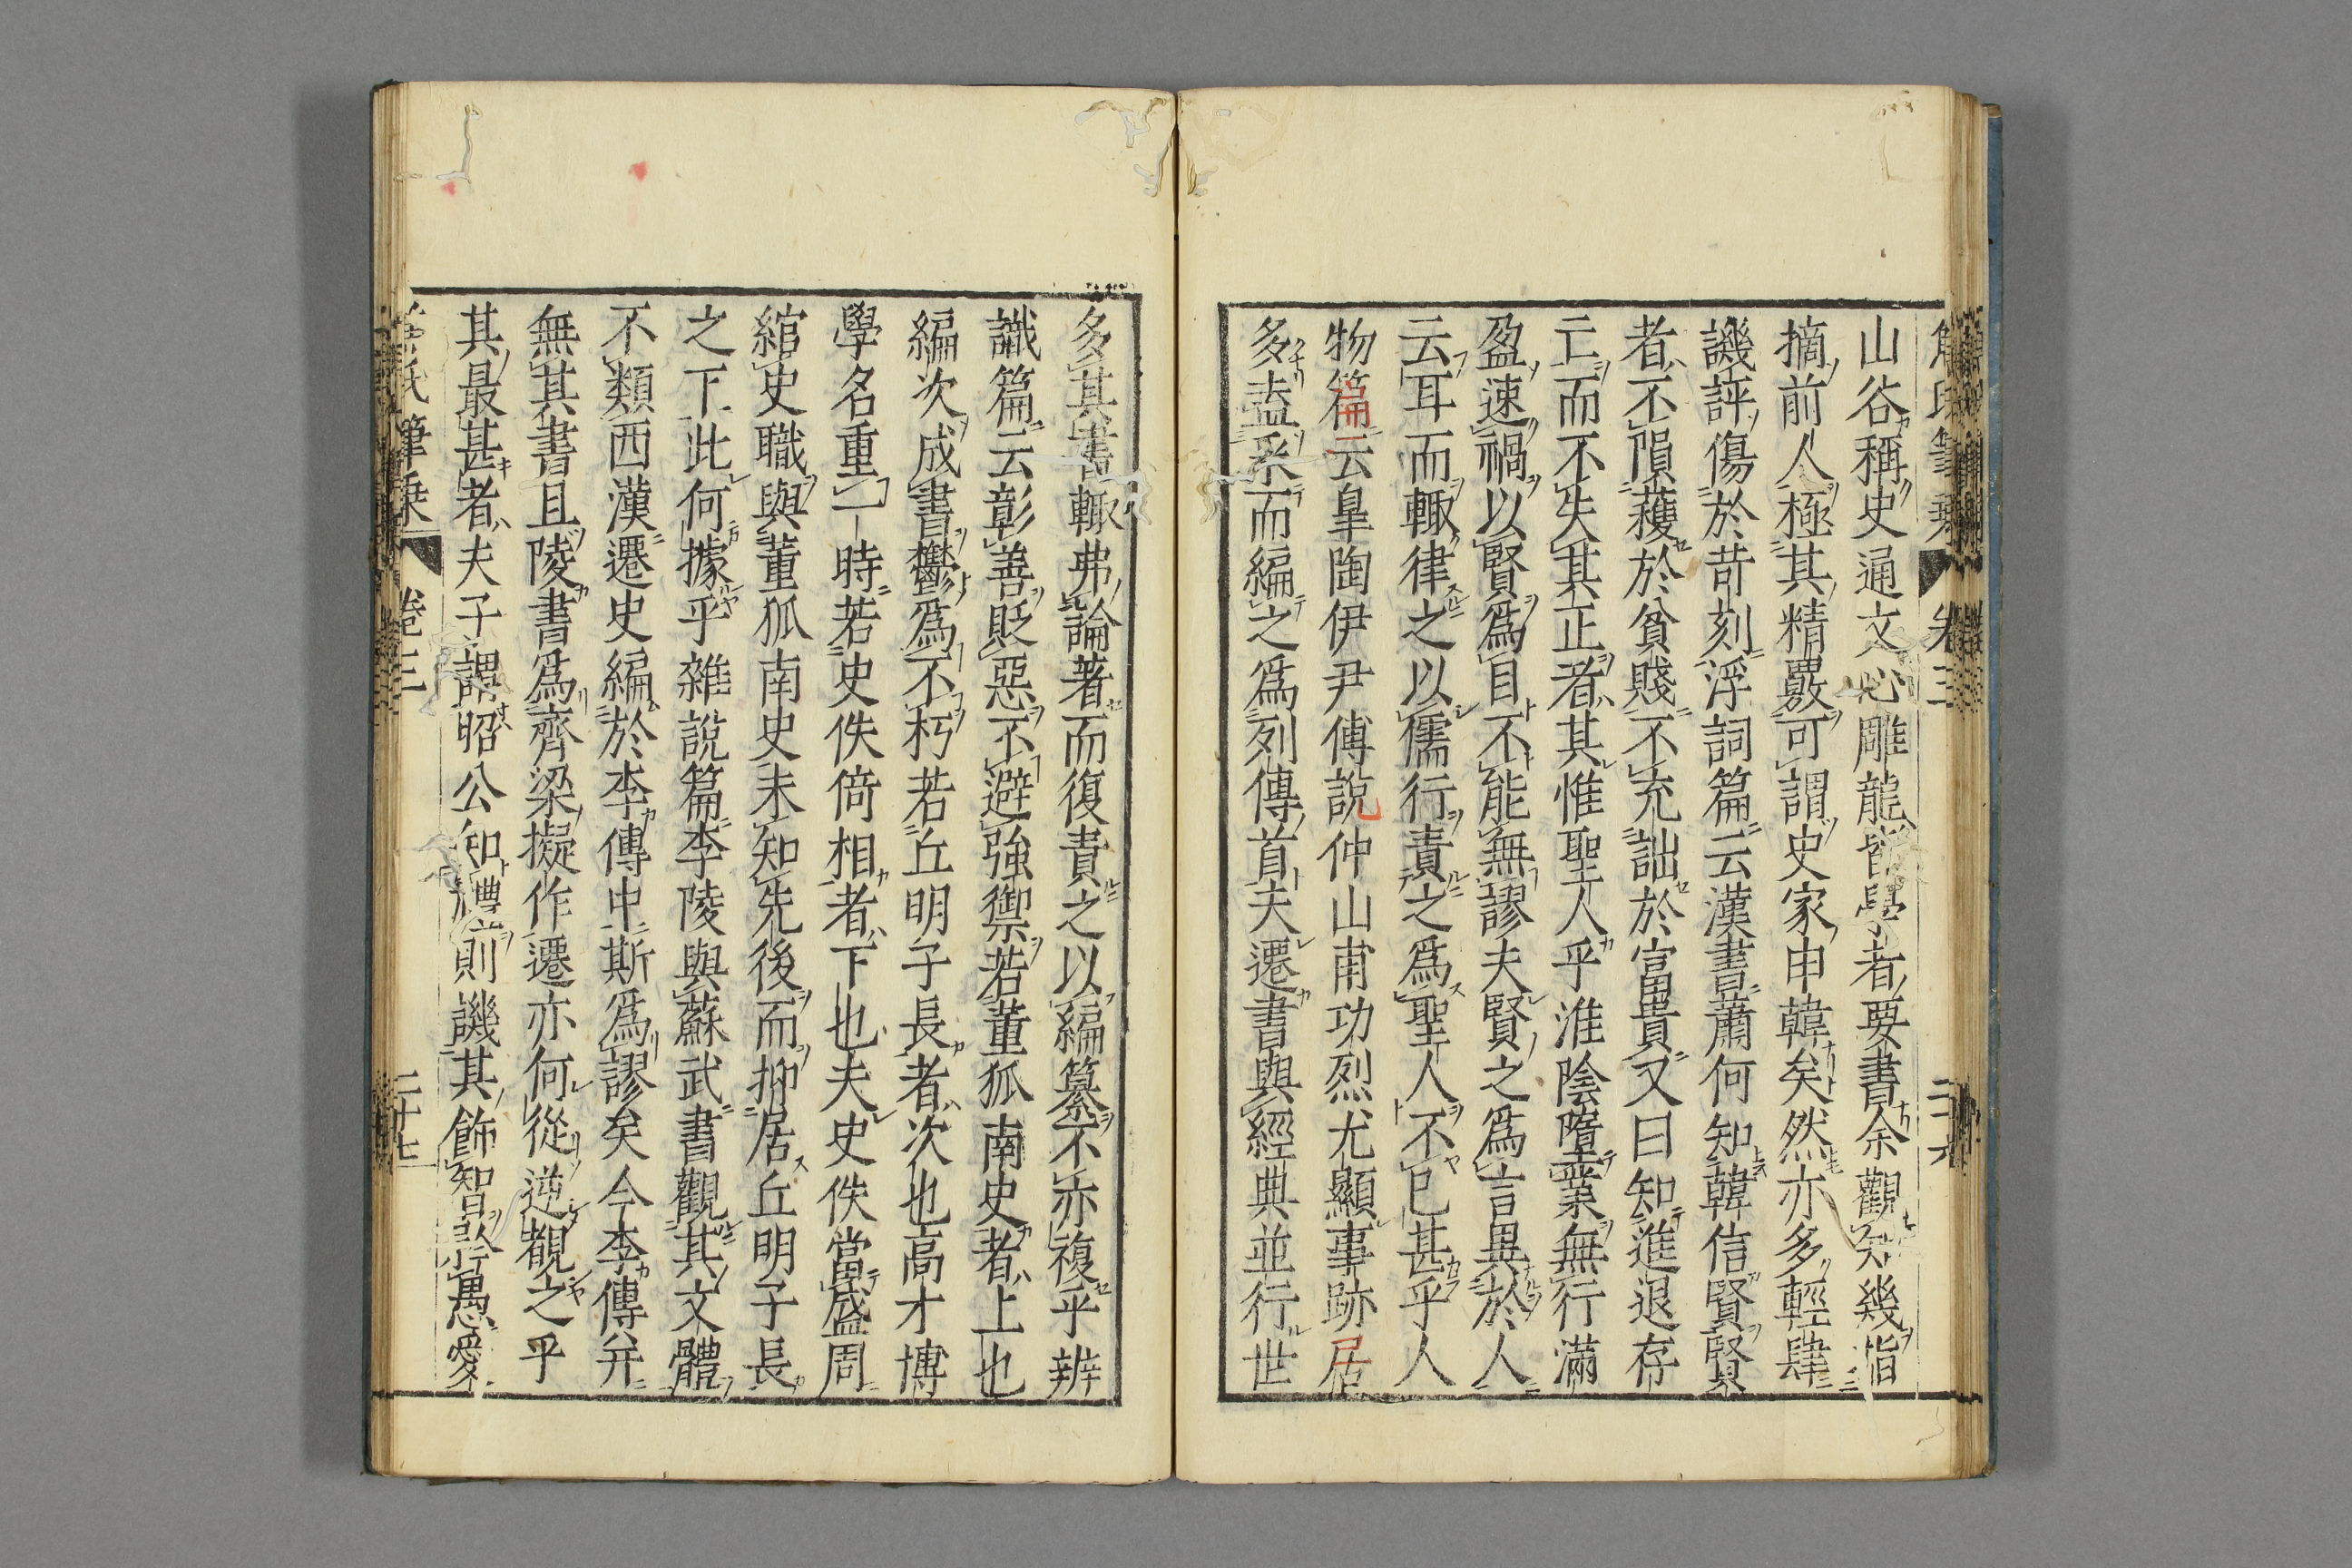 山谷稱史通文心雕龍皆學者要書余觀知幾指
摘前人極其精覈可謂史家申韓矣然亦多輕肆
譏評傷於苛刻浮詞篇云漢書蕭何知韓信賢賢
者不隕穫於貧賤不充詘於富貴又曰知進退存
亡而不失其正者其惟聖人乎淮陰隳業無行滿
盈速禍以賢爲目不能無謬夫賢之爲言異於人
云耳而輙律之以儒行責之爲聖人不已甚乎人
物篇云皐陶伊尹傅說仲山甫功烈尤顯事跡居
多盍采而編之爲列傳首夫遷書與經典並行世
多其書輙弗論著而復責之以編纂不亦複乎辨
識篇云彰善貶惡不避強禦若董狐南史者上也
編次成書鬱爲不朽若丘明子長者次也高才博
學名重一時若史佚倚相者下也夫史佚當盛周
綰史職與董狐南史未知先後而抑居丘明子長
之下此何據乎雜說篇李陵與蘇武書觀其文體
不類西漢遷史編於李傳中斯爲謬矣今李傳并
無其書且陵書爲齊梁擬作遷亦何從逆覩之乎
其最甚者夫子謂昭公知禮則譏其飾智矜愚愛
焦氏筆乘 卷三 二十七